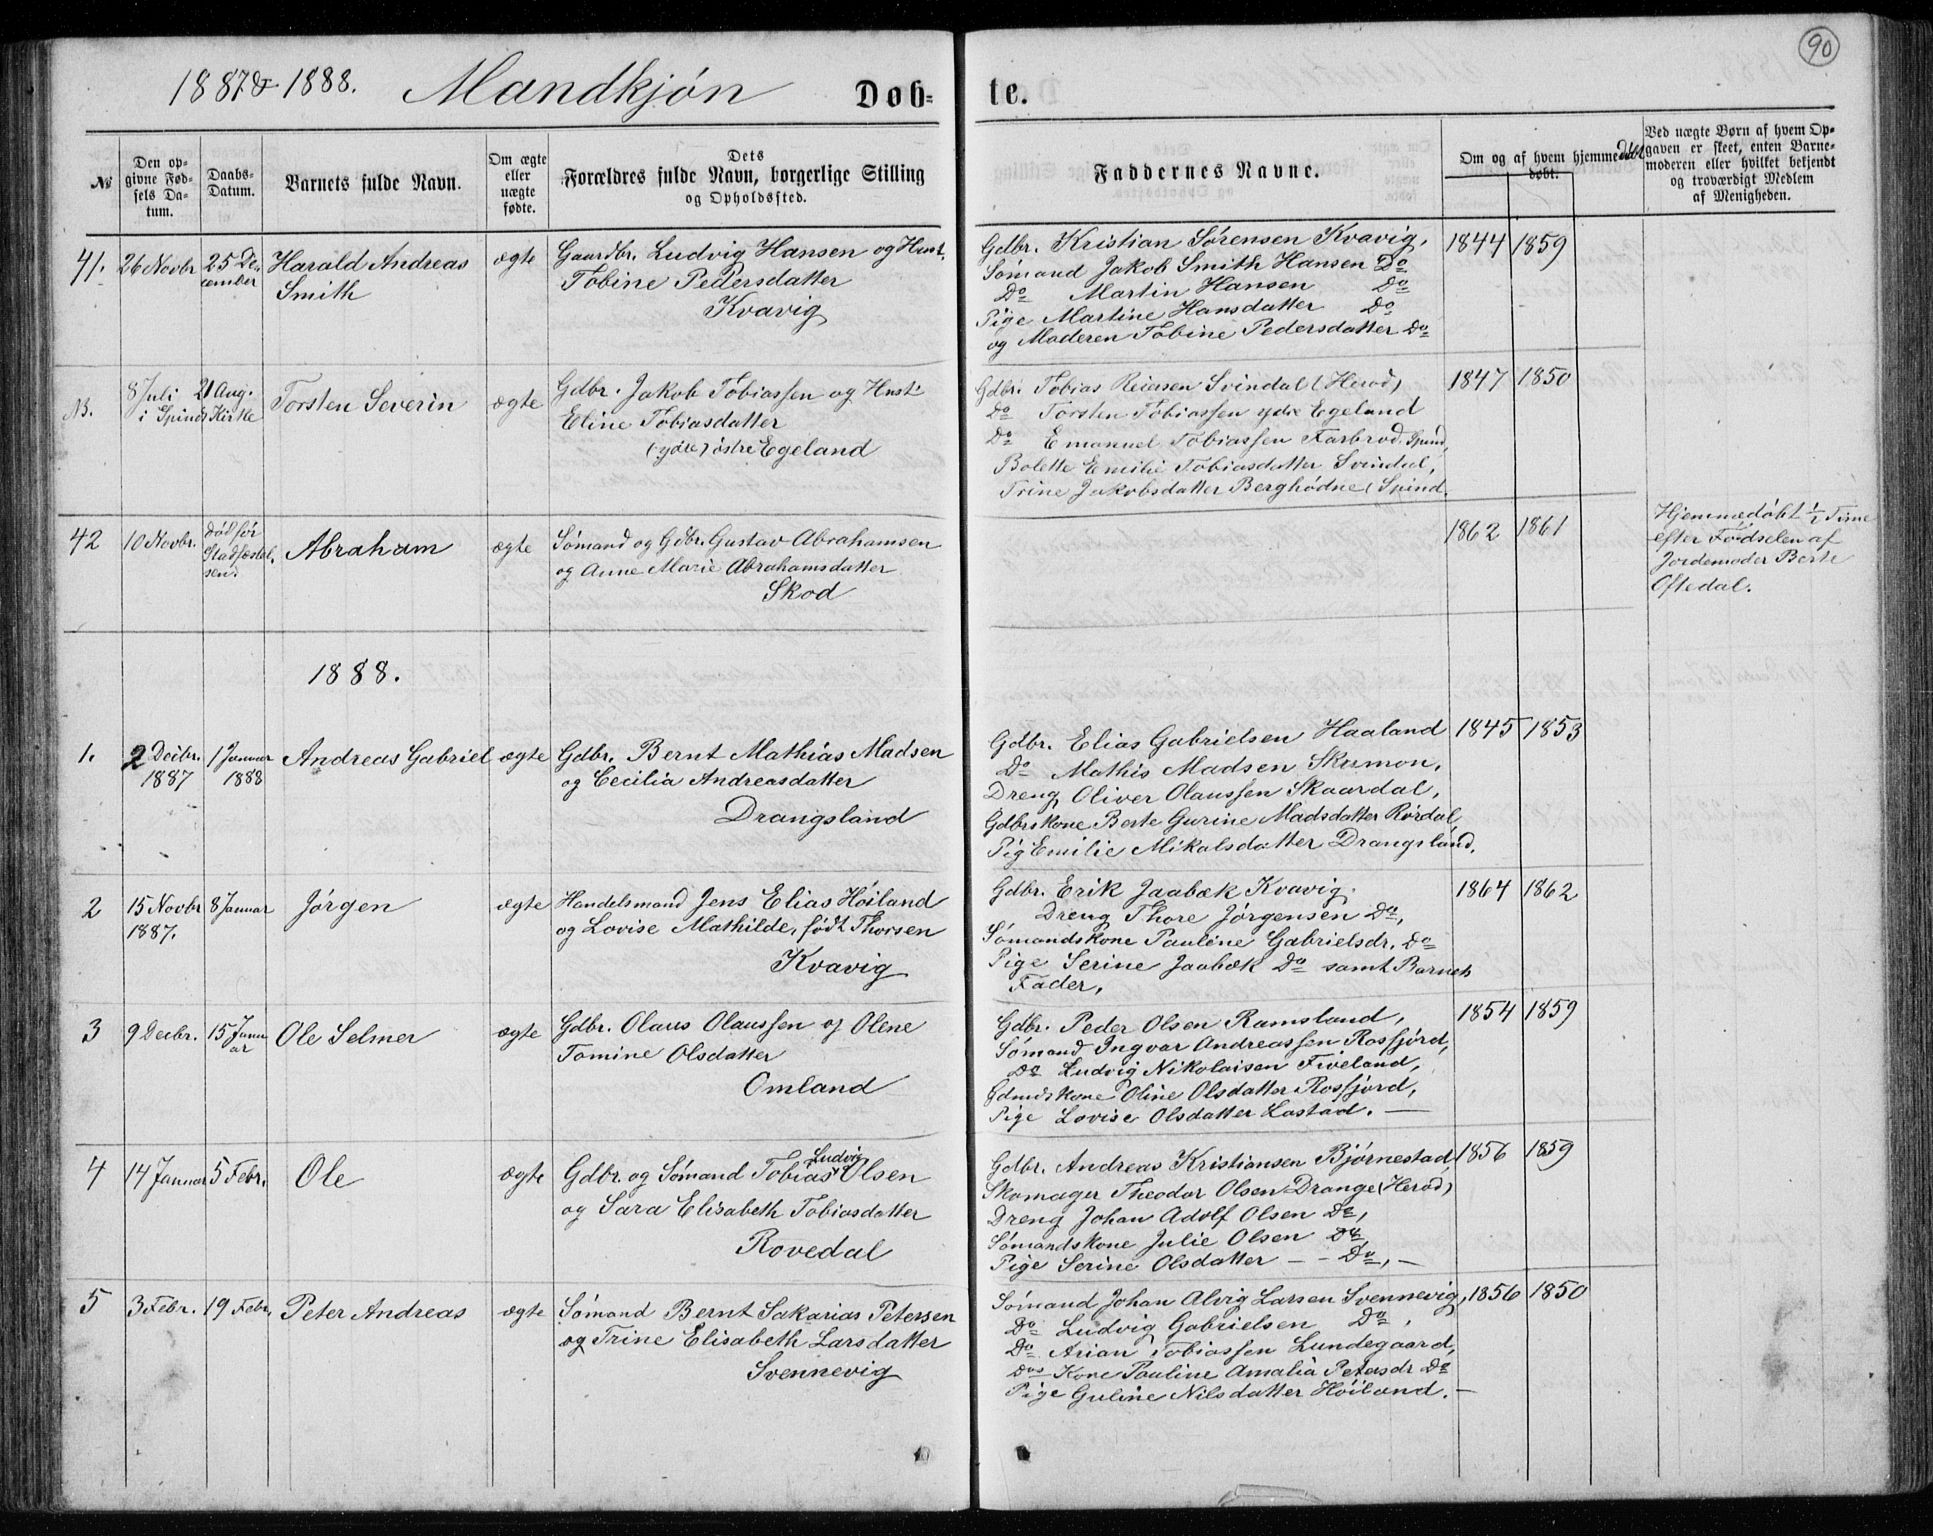 90
1887 & 1888. Mandkjøn Døb- te.
No
Den op-
givne Fød-
sels Da-
tum.
Daabs-
Datum.
Barnets fulde Navn.
Om ægte
eller
uægte
fødte.
Dets
Forældres fulde Navn, borgerlige Stilling
og Opholdssted.
Faddernes Navne.
Om og af hvem hjemmedøbt
døbt.
Ved uægte Børn af hvem Op-
gaven er skeet, enten Barne-
moderen eller hvilket bekjendt
og troværdigt Medlem
af Menigheden.
41.
26 Novbr
25 De-
cember
Harald Andreas
Smith
ægte
Gaardbr. Ludvig Hansen og Hust.
Tobine Pedersdatter
Kvavig
Gdbr. Kristian Sørensen Kvavig,
Sømand Jakob Smith Hansen Do
Do Martin Hansen Do
Pige Martine Hansdatter Do
og Moderen Tobine Pedersdatter Do
1844 1859
N.
8 Juli 21 Aug.
i Spinds Kirke
Torsten Severin
ægte
Gdbr. Jakob Tobiassen og Hust
Eline Tobiasdatter
(ydre) østre Egeland
Gdbr. Tobias Reiersen Svindal (Herød)
Do Torsten Tobiassen ydre Egeland
Do Emanuel Tobiassen Farbrød. Spind,
Bolette Emilie Tobiasdatter Svindal,
Trine Jakobsdatter Berghødne (Spind.
1847 1850
42
10 Novbr.
død før
Stadfæstel-
sen.
Abraham
ægte
Sømand og Gdbr. Gustav Abrahamsen
og Anne Marie Abrahamsdatter
Skod
1862 1861
Hjemmedøbt 1/2 Time
efter Fødselen af
Jordemoder Berte
Oftedal.
1888.
1.
2 Decbr.
1887
1 Januar
1888
Andreas Gabriel
ægte
Gdbr. Bernt Mathias Madsen
og Cecilia Andreasdatter
Drangsland
Gdbr. Elias Gabrielsen Haaland
Do Mathis Madsen Skumon,
Dreng Oliver Olaussen Skaardal,
Gdbrskone Berte Gurine Madsdatter Rørdal,
Pig Emilie Mikalsdatter Drangsland.
1845 1853
2
15 Novbr
1887.
8 Januar
Jørgen
ægte
Handelsmand Jens Elias Høiland
og Lovise Mathilde, født Thorsen
Kvavig
Gdbr. Erik Jaabæk Kvavig.
Dreng Thore Jørgensen Do,
Sømandskone Pauline Gabrielsdr. Do
Pige Serine Jaabæk Do samt Barnets
Fader,
1864 1862
3
9 Decbr.
15 Janu
ar
Ole Selmer
ægte
Gdbr. Olaus Olaussen og Oline
Tomine Olsdatter
Omland
Gdbr. Peder Olsen Ramsland,
Sømand Ingvar Andreassen Rosfjord,
Do Ludvig Nikolaisen Fiveland,
Gdmdskone Oline Olsdatter Rosfjord,
Pige Lovise Olsdatter Hastad. —
1854 1859
4
14 Januar
5 Febr.
Ole
ægte
Gdbr. og Sømand Tobias Ludvig Olsen
og Sara Elisabeth Tobiasdatter
Rovedal
Gdbr. Andreas Kristiansen Bjørnestad,
Skomager Theodor Olsen Drange (Herød)
Dreng Johan Adolf Olsen Do,
Sømandskone Julie Olsen Do
Pige Serine Olsdatter — - Do, —
1856 1859
5
3 Febr.
19 Febr.
Peter Andreas
ægte
Sømand Bernt Sakarias Petersen
og Trine Elisabeth Larsdatter
Svennevig
Sømand Johan Alvig Larsen Svennevig,
Do Ludvig Gabrielsen Do,
Do Arian Tobiassen Lundegaard,
Dos Kone Pauline Amalia Petersdr Do
Pige Guline Nilsdatter Høiland. —
1856 1850